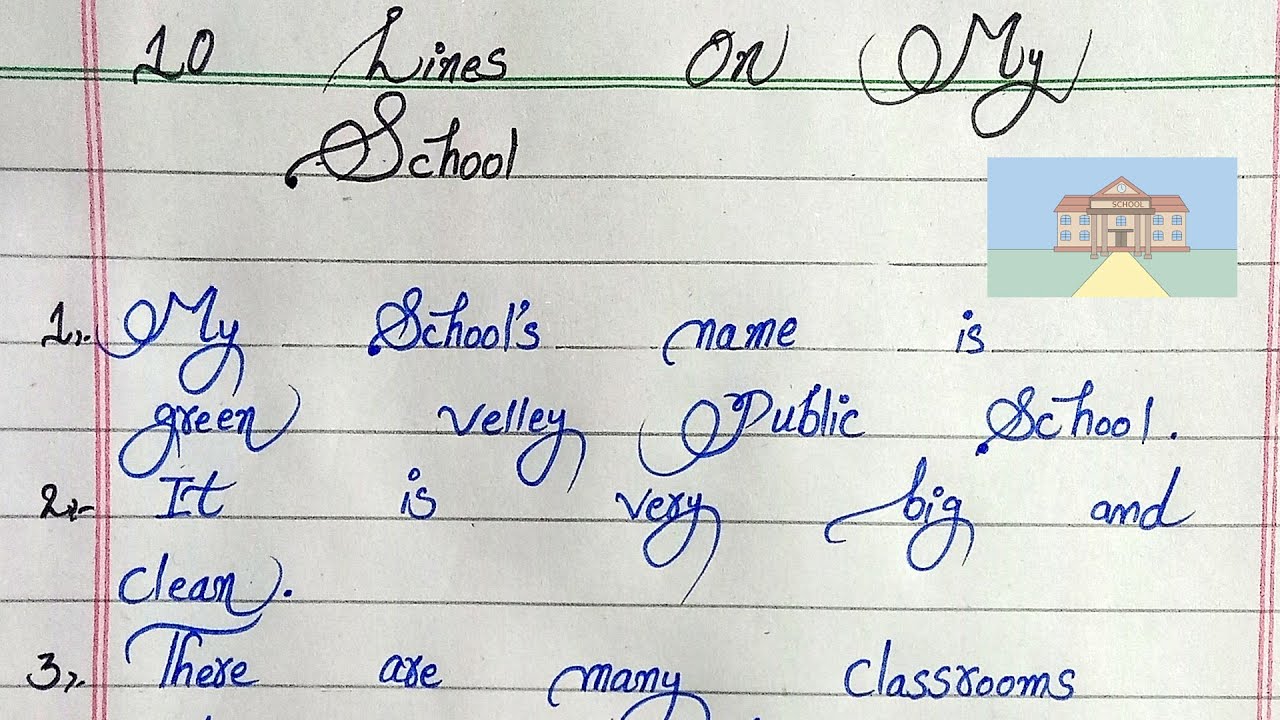 10 Lines On My
School
SCHOOL
1:- My School's name is
green velley Public School.
2:- It is very big and
clean.
3:- There are many classrooms